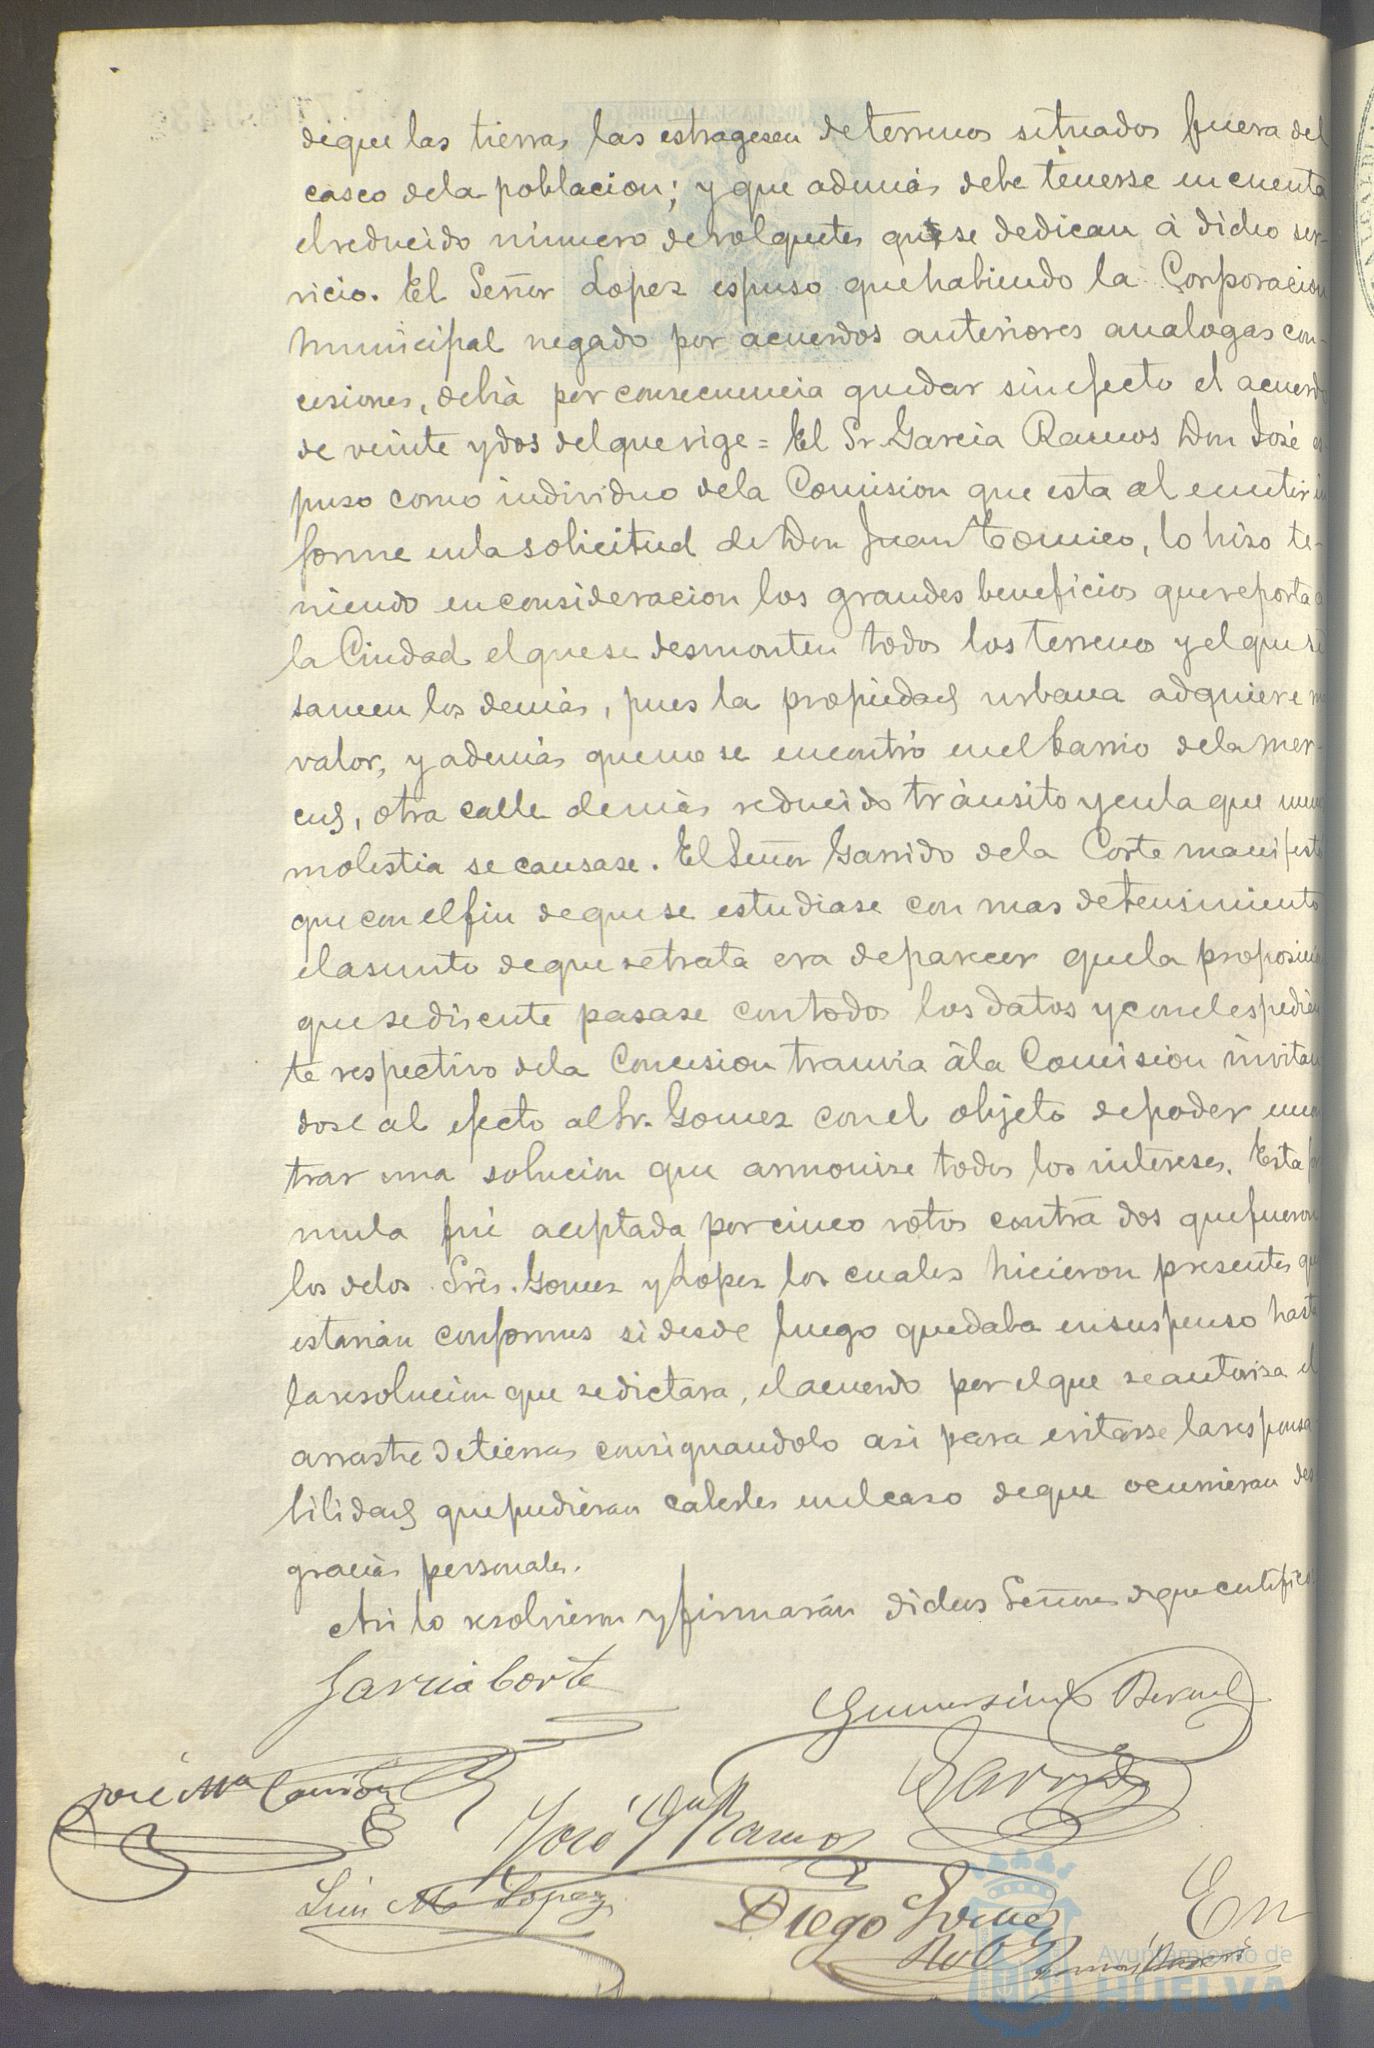 de que las tierras las estragesen de terrenos situados fuera del
casco de la poblacion; y que además debe tenerse en cuenta
el reducido número de volquetes que se dedican á dicho ser-
vicio. El Señor Lopez espuso que habiendo la Corporacion
Municipal negado por acuerdos anteriores analogas con-
cesiones, debia por consecuencia quedar sin efecto el acuerdo
de veinte y dos del que rige = El Sr. Garcia Ramos Don José es
puso como individuo de la Comision que esta al emitir in
forme en la solicitud de Don Juan, lo hiso te-
niendo en consideracion los grandes beneficios que reporta a
la Ciudad el que se desmonten todos los terrenos y el que se
saneen los demás, pues la propiedad urbana adquiere
valor, y además que no se encontró en el barrio de la Mer-
ced, otra calle de más reducido tránsito y en la que menos
molestia se causase. El Señor Garrido de la Corte manifestó
que con el fin de que se estudiase con mas detenimiento
el asunto de que se trata era de parecer que la proposición
que se discute pasase con todos los datos y con el espedien
te respectivo de la Concesion tranvia á la Comision invitan
dose al efecto al Sr. Gomez con el objeto de poder encon
trar una solucion que armonise todos los intereses. Esta fór
mula fué aceptada por cinco votos contra dos que fueron
los de los Sres. Gomez y Lopez los cuales hicieron presentes que
estarian conformes si desde luego quedaba en suspenso hasta
la resolucion que se dictara, el acuerdo por el que se autorisa el
arrastre de tierras consignandolo asi para evitarse la responsa
bilidad que pudieran caberles en el caso de que ocurrieran des
gracias personales.
Asi lo resolvieron y firmarán dichos Señores de que certifico.
Garcia Corte
Gumersindo Bernal
José Mª
Garrido
José Gª Ramos
Luis Mª Lopez
Diego Gomez
En
Ayuntamiento de
HUELVA